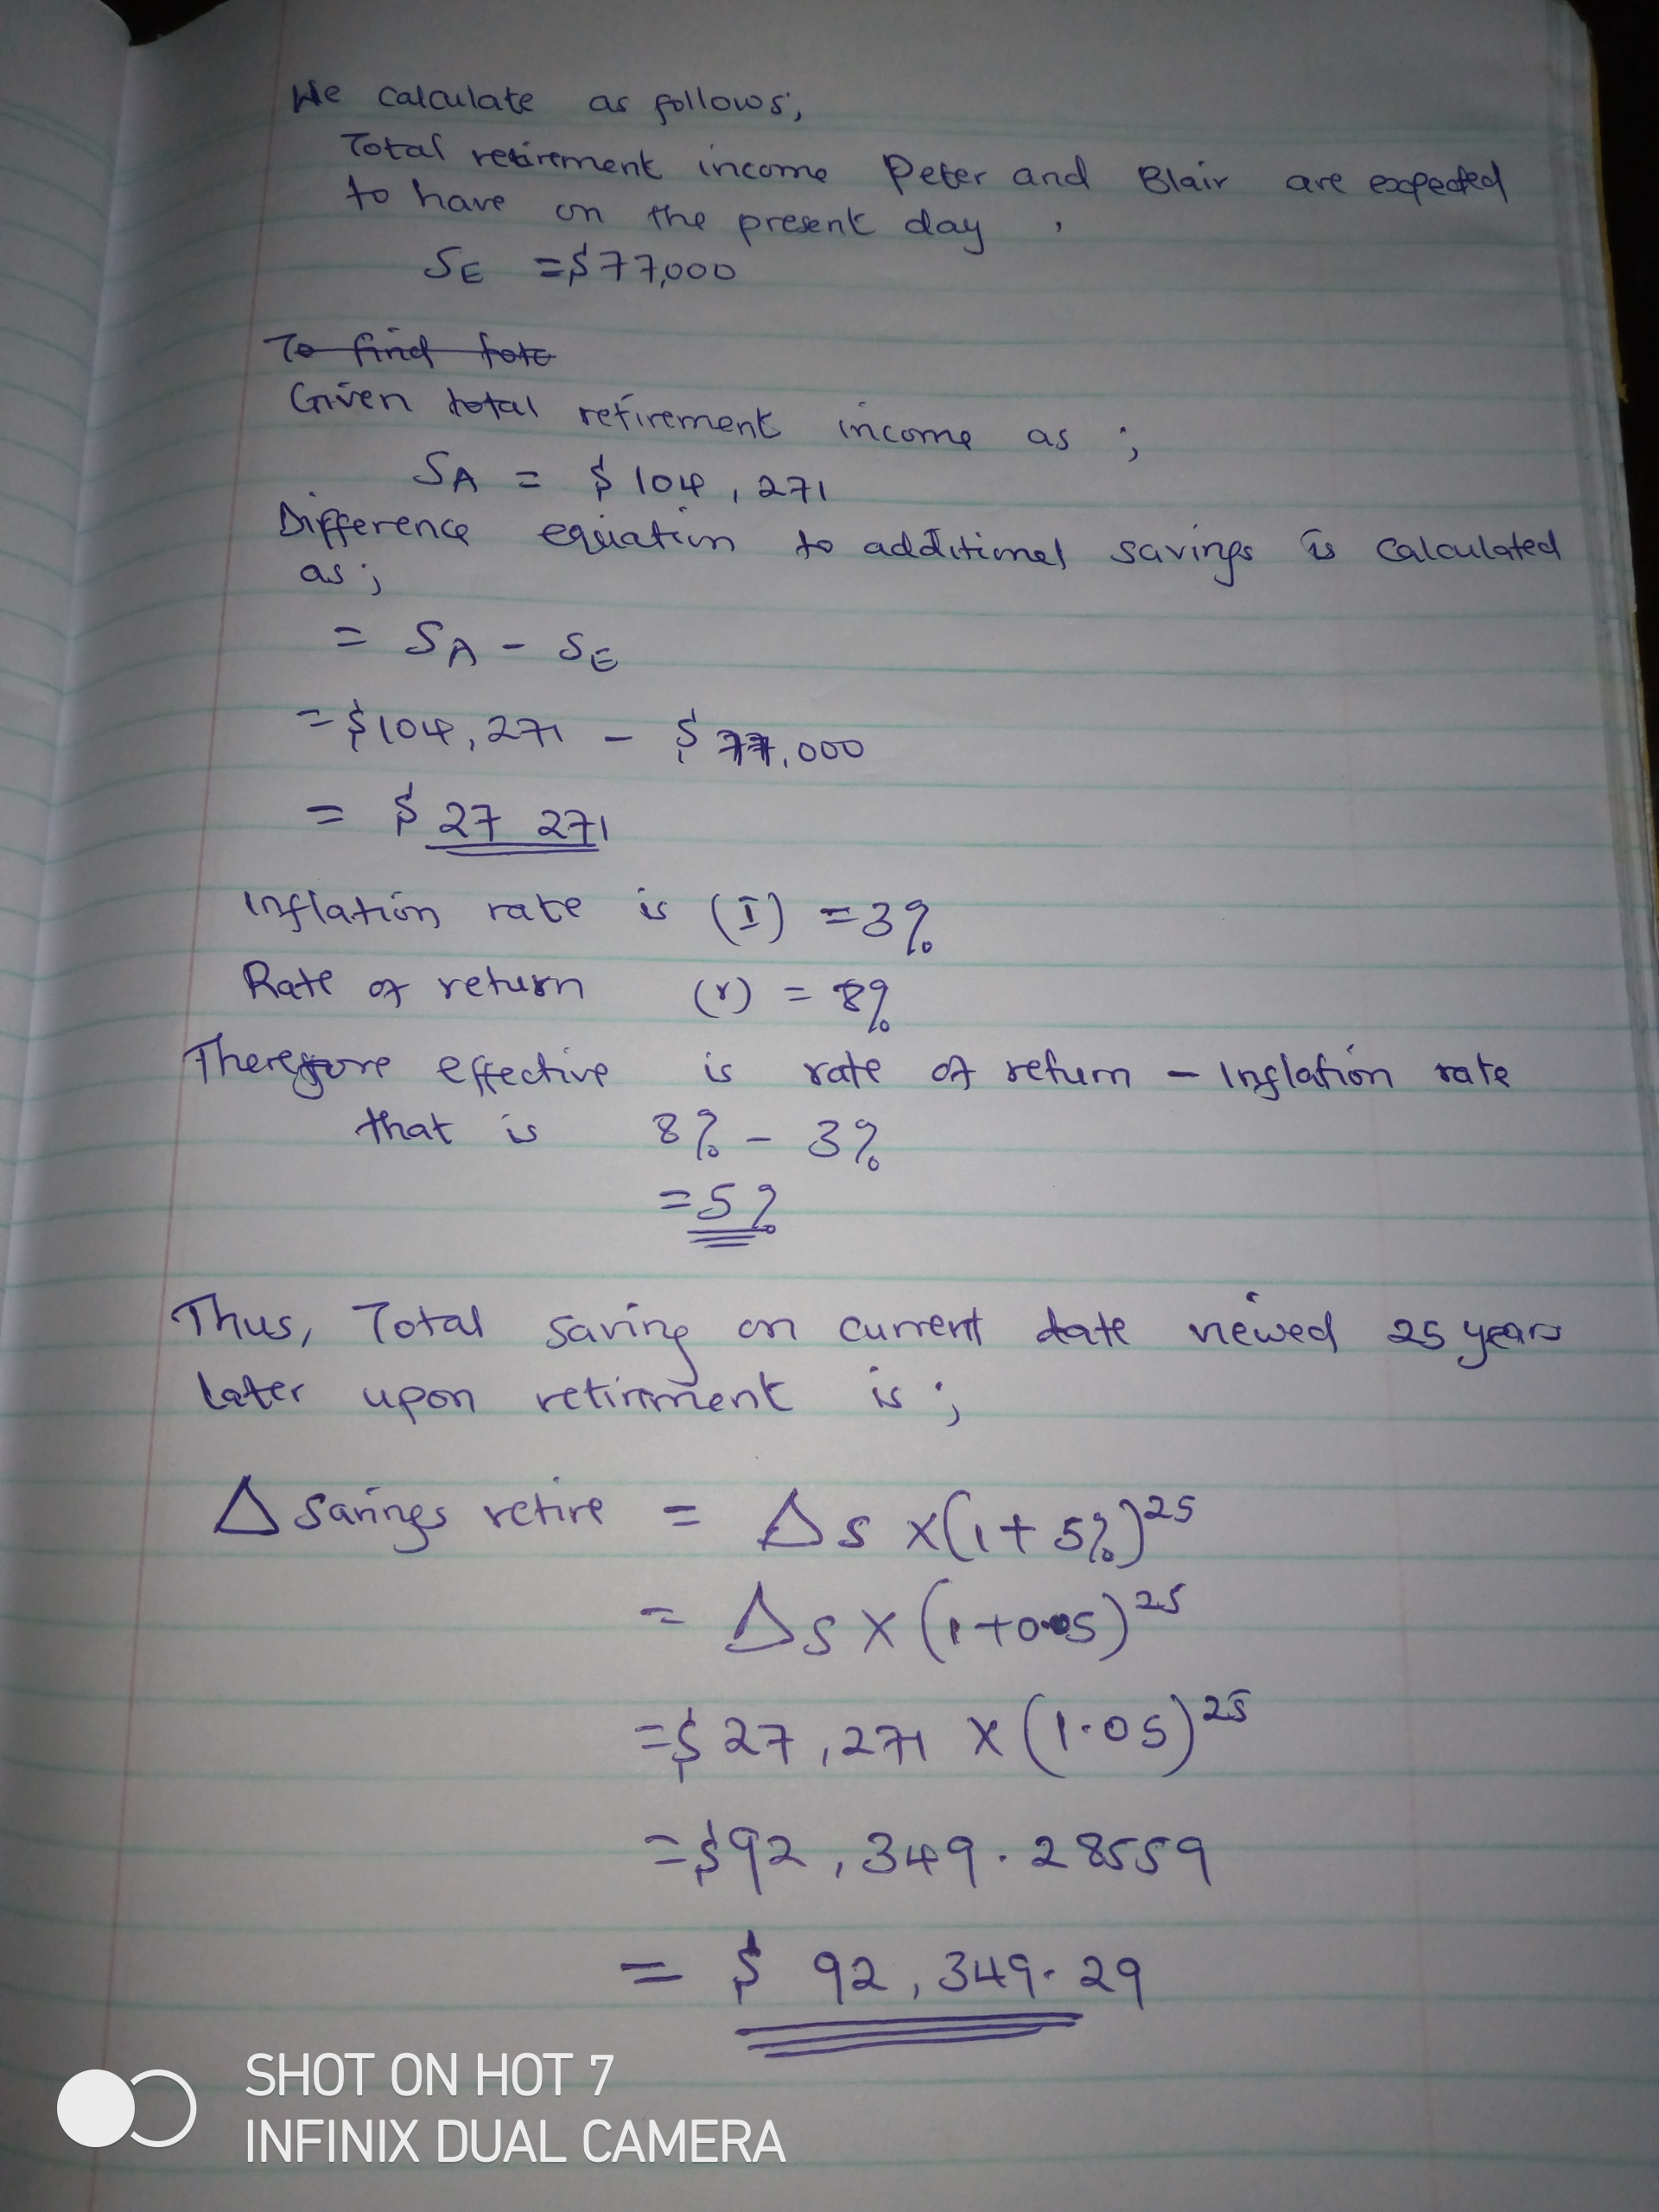 We calculate as follows;
Total retirement income Peter and Blair are expected
to have on the present day,
SE = $77,000
To find tote
Given total retirement income as ;
SA = $ 104,271
Difference equation to additional savings is calculated
as ;
= SA - SE
= $104,271 - $ 77,000
= $ 27 271
Inflation rate is (I) = 3%
Rate of return (r) = 8%
Therefore effective is rate of return - Inflation rate
that is 8% - 3%
= 5%
Thus, Total saving on current date viewed 25 years
later upon retirement is ;
Δ savings retire = Δs x (1 + 5%)^25
= Δs x (1+0.05)^25
= $ 27,271 x (1.05)^25
= $92,349.28559
= $ 92,349.29
SHOT ON HOT 7
INFINIX DUAL CAMERA